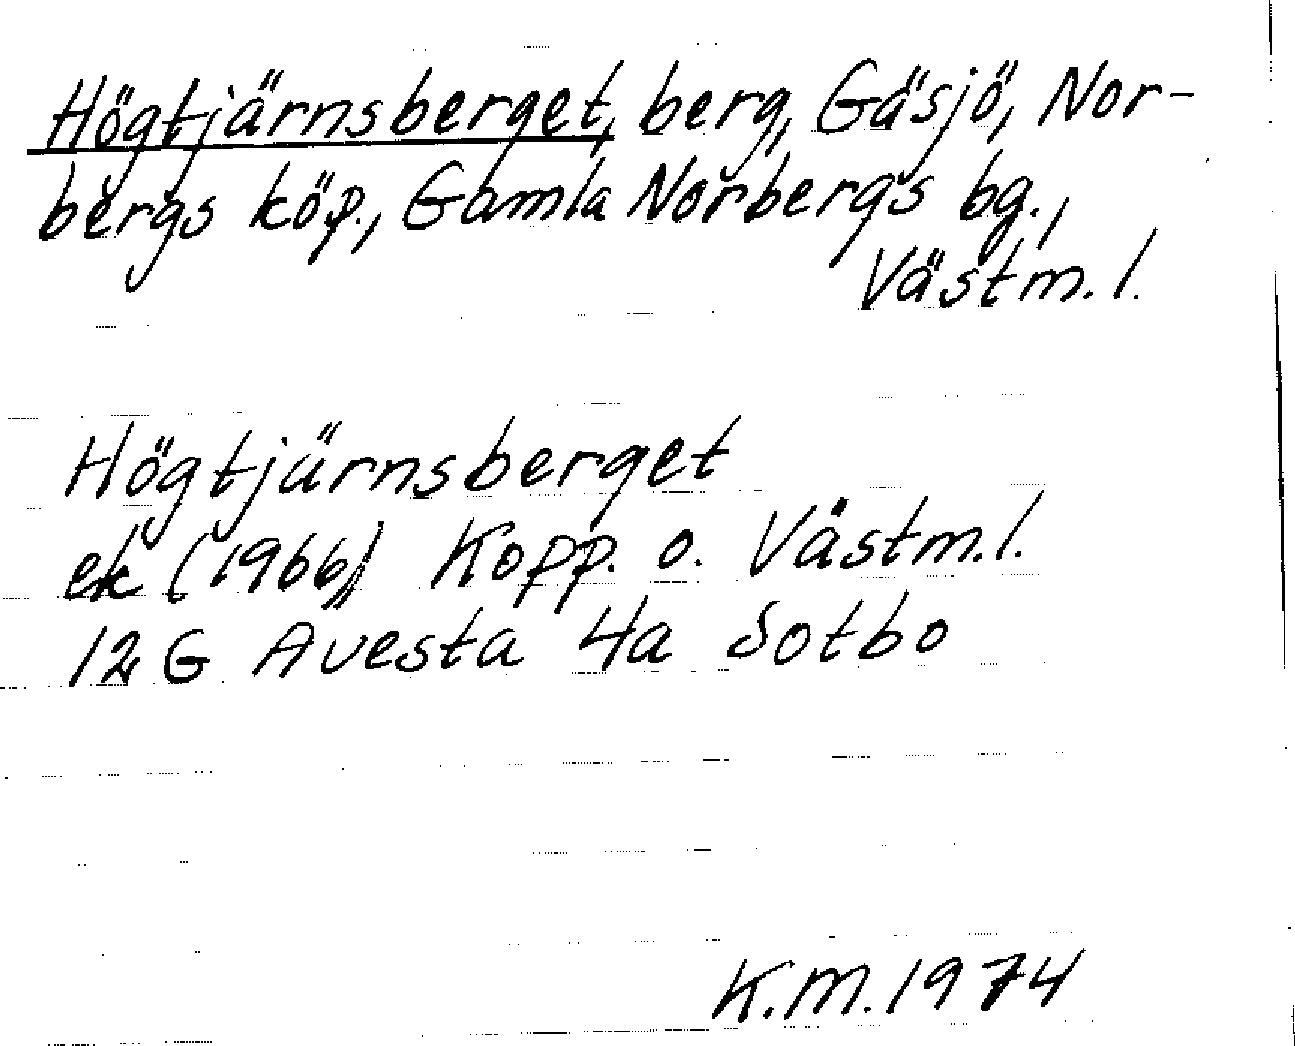 Högtjärnsberget, berg, Gäsjö, Nor-
bergs köp., Gamla Norbergs bg.,
Västm. l.
Högtjärnsberget
ek (1966) Kopp. o. Västm. l.
12 G Avesta 4a Sotbo
K.M. 1974